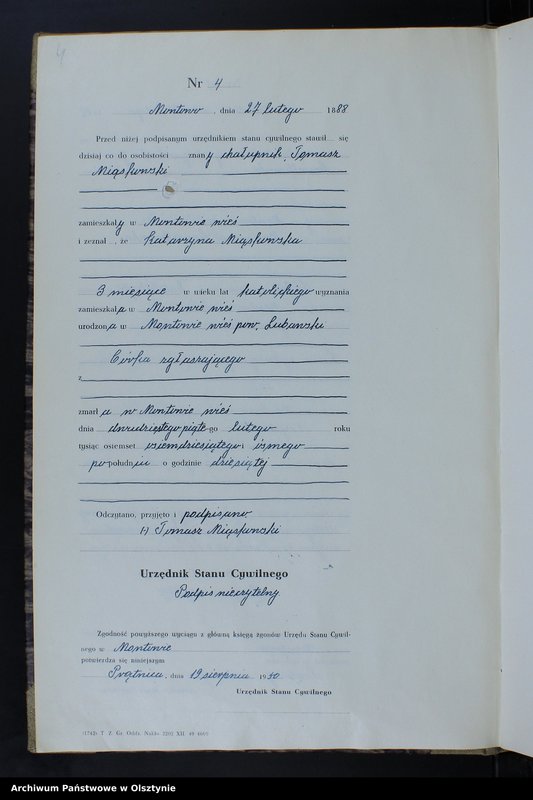 4
Nr 4
Montowo, dnia 27 lutego 1888
Przed niżej podpisanym urzędnikiem stanu cywilnego stawił się
dzisiaj co do osobistości znany chałupnik, Tomasz
Miąskowski
zamieszkały w Montowie wieś
i zeznał, że Katarzyna Miąskowska
3 miesiące w wieku lat katolickiego wyznania
zamieszkała w Montowie wieś
urodzona w Montowie wieś pow. Lubawski
Córka zgłaszającego
z
zmarła w Montowie wieś
dnia dwudziestego piąte-go lutego roku
tysiąc osiemset osiemdziesiątego i ósmego
po południu o godzinie dziesiątej
Odczytano, przyjęto i podpisano
(-) Tomasz Miąskowski
Urzędnik Stanu Cywilnego
Podpis nieczytelny
Zgodność powyższego wyciągu z główną księgą zgonów Urzędu Stanu Cywil-
nego w Montowie
potwierdza się niniejszym
Prątnica, dnia 19 sierpnia 1950
Urzędnik Stanu Cywilnego
(1742) T. Z. Gr. Oddz. Nakło 3202 XII. 49 6000
Archiwum Państwowe w Olsztynie